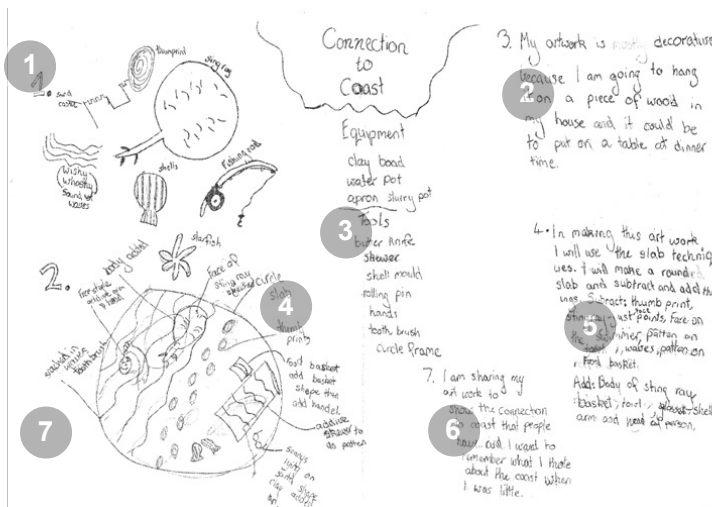 1
1.
sand
castle
thumbprint
sting ray
wishy
whooshy
sound of
waves
shells
fishing rod
starfish
2.
body added
face of
sting ray
circle
slab
4
thumb
prints
food basket
add basket
shape then
add handel
add
skewer to
do patten
toothbrush
7
Connection
to
Coast
Equipment
clay board
water pot
apron slurry pot
Tools
3
butter knife
skewer
shell mould
rolling pin
hands
tooth brush
circle frame
3. My artwork is mostly decorature
because I am going to hang
2
it on a piece of wood in
my house and it could be
to put on a table at dinner
time.
4. In making this art work
I will use the slab techniq
ues. I will make a rounded
slab and subtract and add th
Subtract: thumb print,
just face points, face on
the swimmer, patten on
5
waves, patten on
food basket.
Add: Body of sting ray
basket, towel, shell
arm and head of person.
7. I am sharing my
art work to
show the connection
6
to coast that people
have and I want to
remember what I thote
about the coast when
I was little.